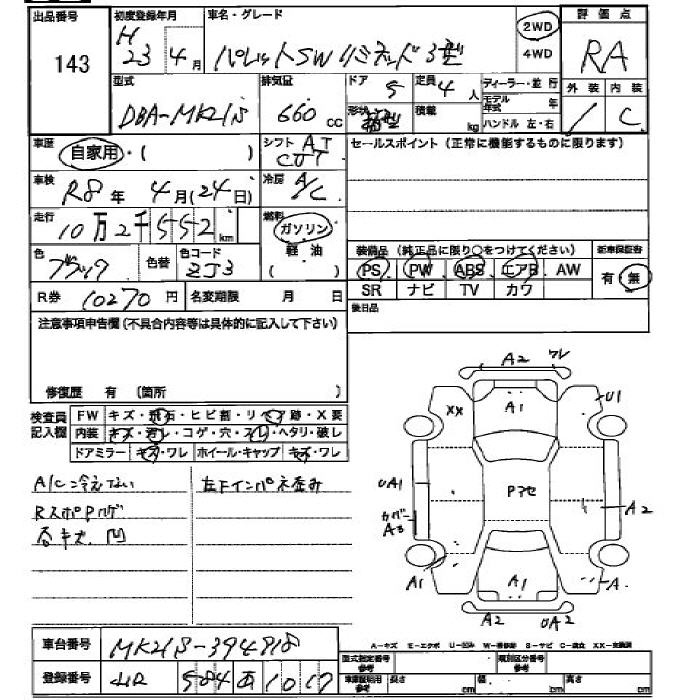 出品番号 143
初度登録年月 H23年4月
車名・グレード パレットSW リミテッド3型
2WD 4WD
評価点 RA
外装 内装 C
型式 DBA-MK21S
排気量 660 CC
ドア 5
定員 4人
形状 箱型
積載 kg
ディーラー・並行
モデル年式 年
ハンドル 左・右
車歴 自家用・( )
シフト AT CVT
セールスポイント(正常に機能するものに限ります)
車検 R8年4月(24日)
冷房 A/C
走行 10万2千552km
燃料 ガソリン 軽油 ( )
色 ブラック 色替 色コード ZJ3
装備品(純正品に限り○をつけてください) 新車保証書
PS PW ABS エアB AW 有・無
SR ナビ TV カワ
R券 10270円 名変期限 月 日
後日品
注意事項申告欄(不具合内容等は具体的に記入して下さい)
修復歴 有 (箇所 )
検査員記入欄
FW キズ・飛石・ヒビ割・リペア跡・X要
内装 キズ・汚レ・コゲ・穴・スレ・ヘタリ・破レ
ドアミラー キズ・ワレ ホイール・キャップ キズ・ワレ
A/C冷えない 左下インパネ歪み
RスポPハゲ
各キズ、凹
A2 ワレ
XX A1 U1
UA1 Pアセ A2
カバー A3
A1 A1 A
A2 UA2
車台番号 MK21S-394818
登録番号 584 あ 1017
A-キズ E-エクボ U-凹み W-補修跡 S-サビ C-腐食 XX-交換済
型式指定番号 参考 類別区分番号 参考
車庫証明用 参考 長さ cm 幅 cm 高さ cm